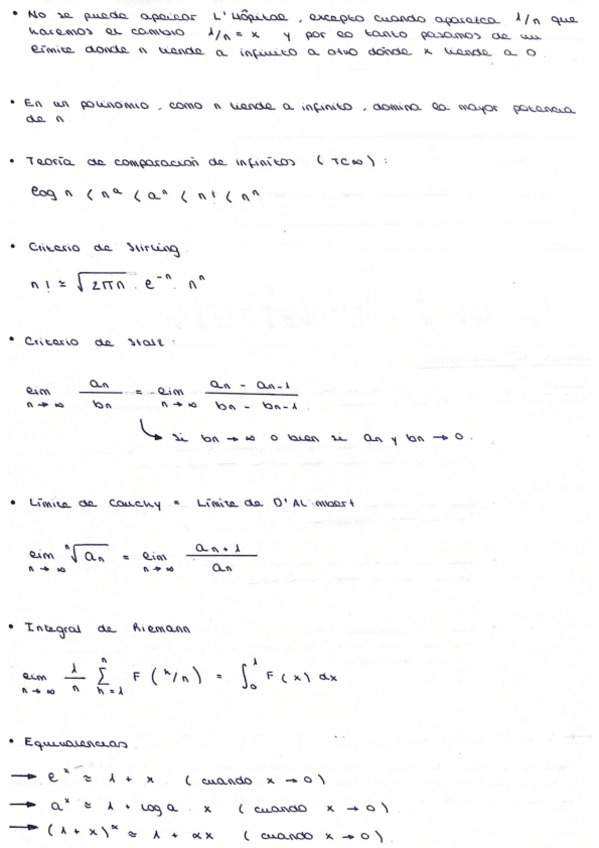 • No se puede aplicar L'Hôpital, excepto cuando aparezca 1/n que
haremos el cambio 1/n = x y por lo tanto pasamos de un
límite donde n tiende a infinito a otro donde x tiende a 0.
• En un polinomio, como n tiende a infinito, domina la mayor potencia
de n
• Teoría de comparación de infinitos (TC∞):
log n < n^a < a^n < n! < n^n
• Criterio de Stirling
n! ≈ √(2πn) · e^-n · n^n
• Criterio de Stolz:
lim n→∞ an/bn = lim n→∞ (an - an-1)/(bn - bn-1)
↳ si bn → ∞ o bien si an y bn → 0.
• Límite de Cauchy = Límite de D'Al mbert
lim n→∞ ⁿ√an = lim n→∞ an+1/an
• Integral de Riemann
lim n→∞ 1/n Σ k=1 n F(k/n) = ∫₀¹ F(x) dx
• Equivalencias
→ e^x ≈ 1 + x (cuando x → 0)
→ a^x ≈ 1 + log a · x (cuando x → 0)
→ (1 + x)^α ≈ 1 + αx (cuando x → 0)